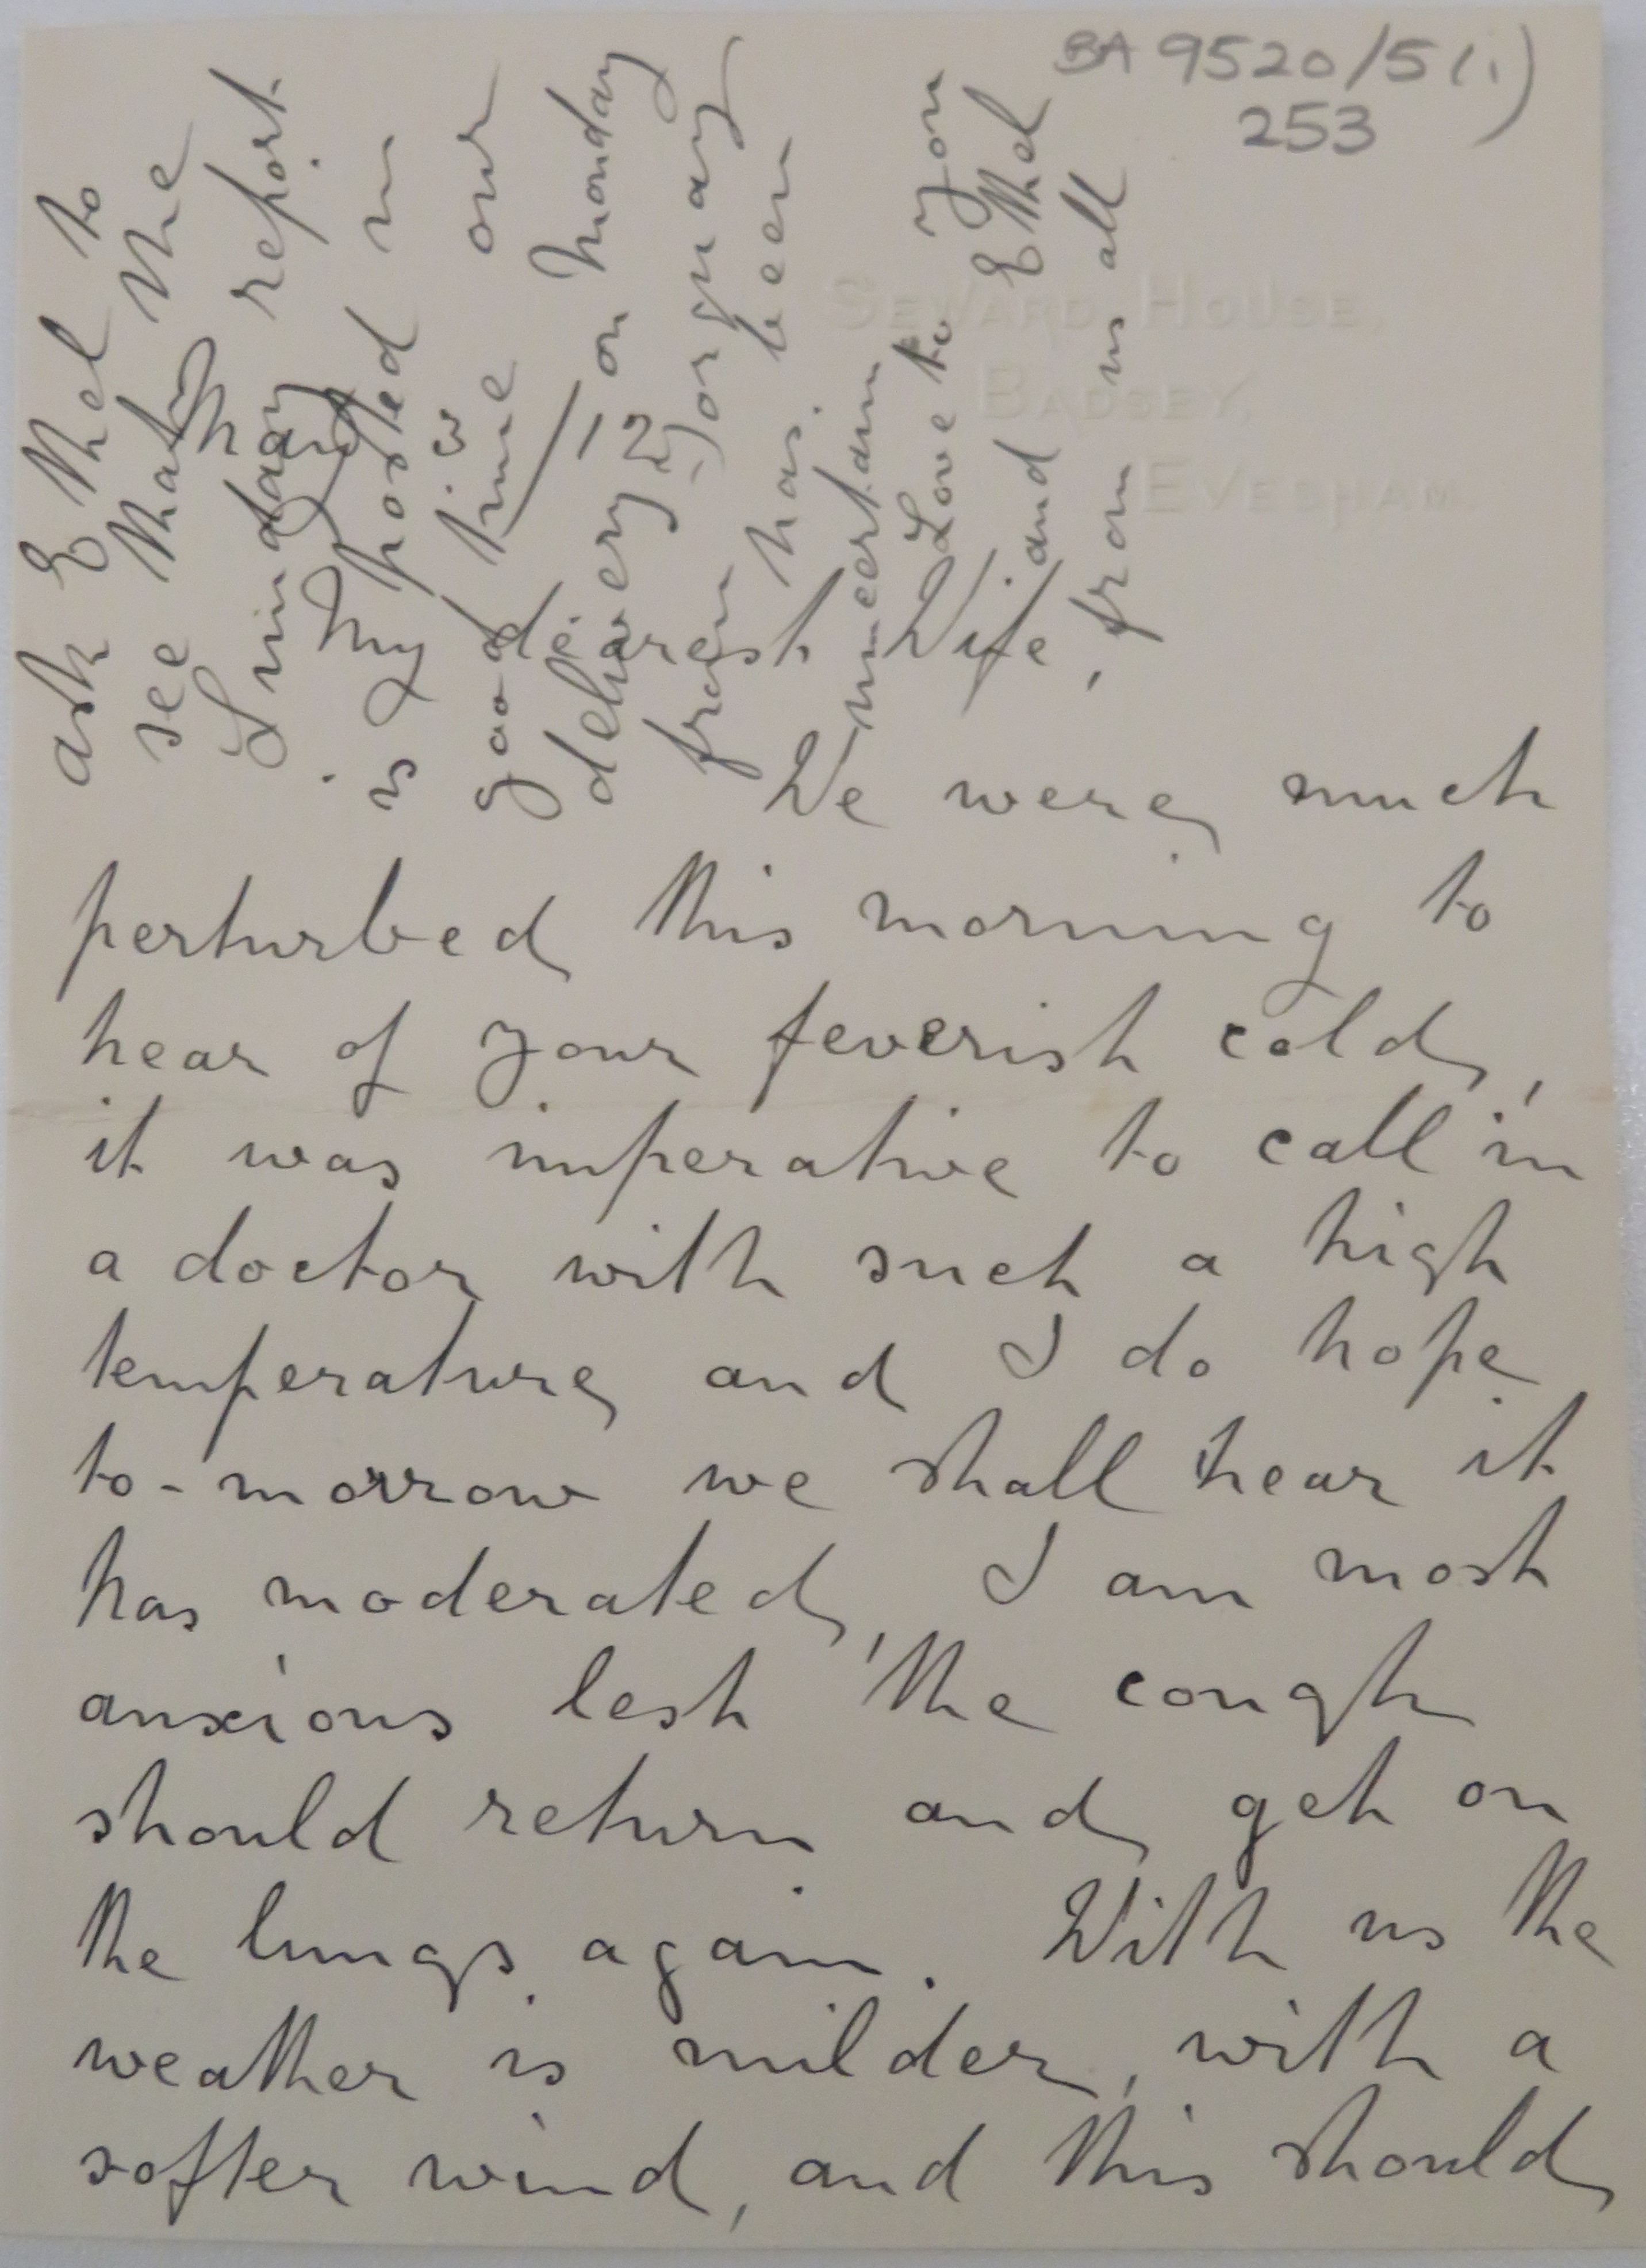 BA 9520/5(i)
253
SEWARD HOUSE,
BADSEY,
EVESHAM.
3/12
My dearest Wife,
We were much
perturbed this morning to
hear of your feverish cold,
it was imperative to call in
a doctor with such a high
temperature and I do hope
to-morrow we shall hear it
has moderated, I am most
anxious lest the cough
should return and get on
the lungs again. With us the
weather is milder, with a
softer wind, and this should
ask Ethel to
see that the
Sunday report
is posted in
good time our
delivery on Monday
from Torquay
has been
uncertain.
Love to you
and Ethel
from us all